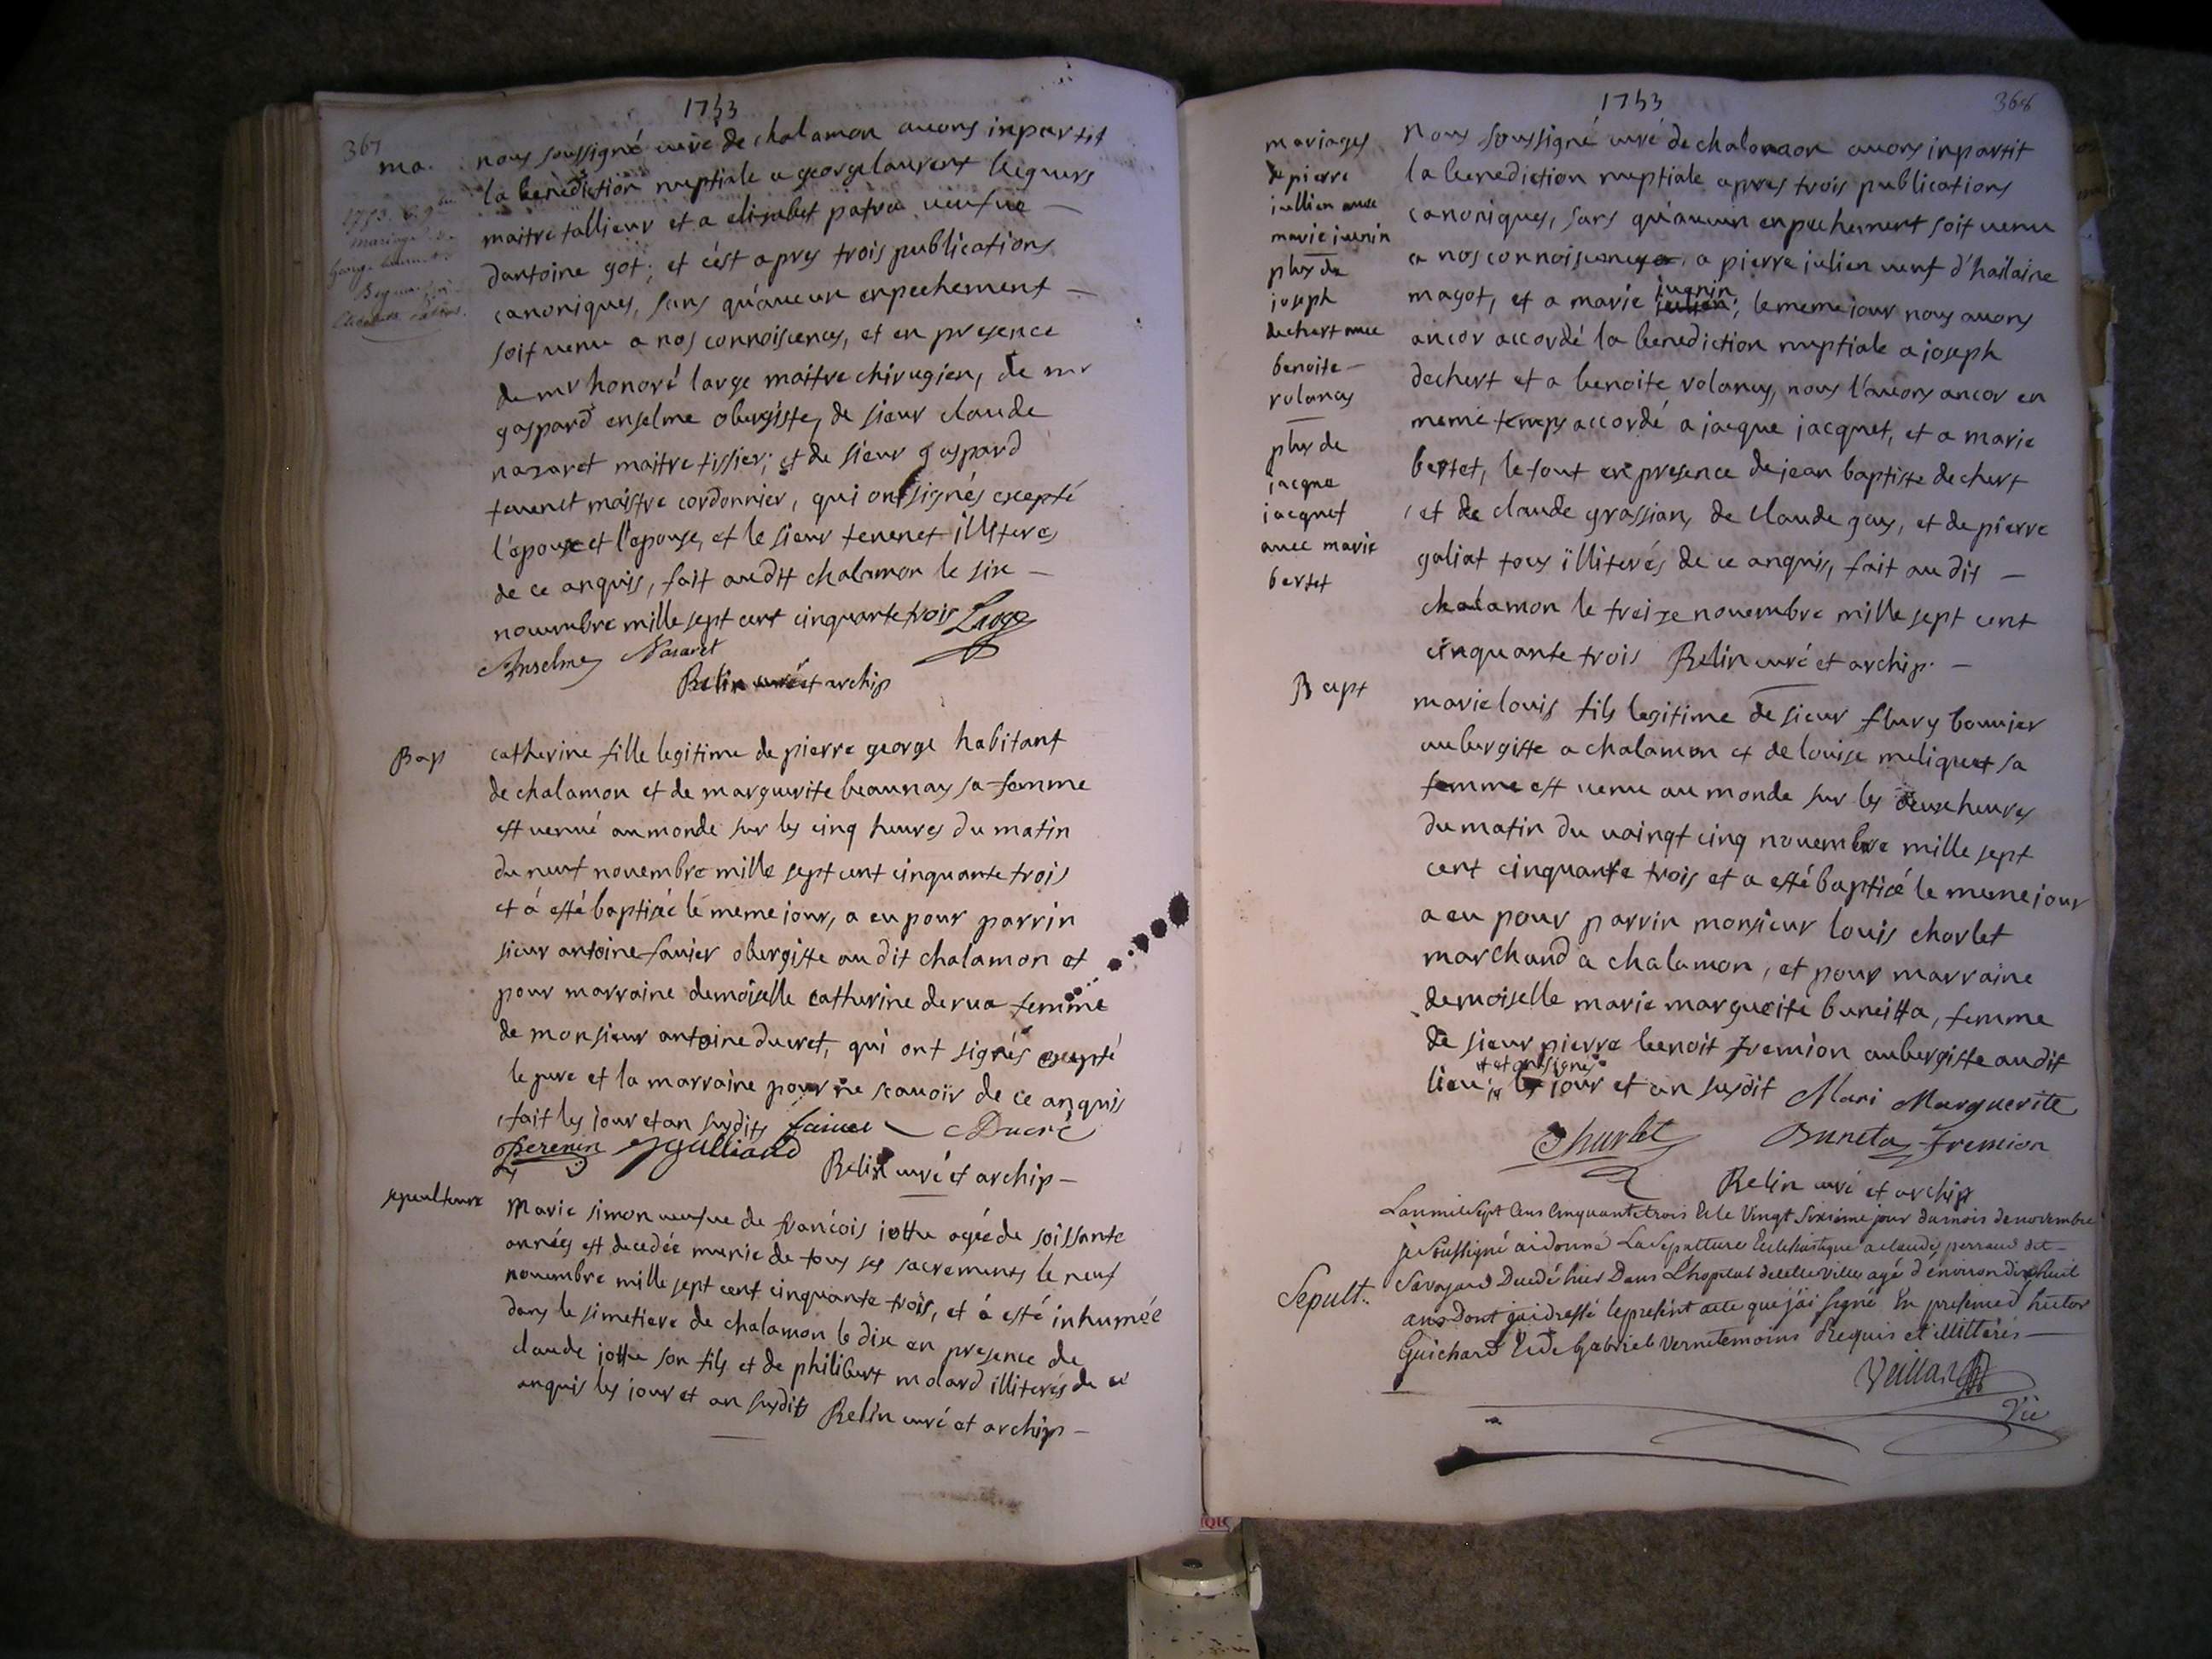 1753
367
ma. nous soussigné curé de chalamon auons inpartit
la benediction nuptiale a george laurent beguurs
maitre tallieur et a elisabet patru ueufue —
dantoine got; et c'est apres trois publications
canoniques, sans qu'aucun enpechement —
soit uenu a nos connoiscences, et en presence
de mr honoré large maitre chirugien, de mr
gaspard enselme obergiste, de sieur claude
nazaret maitre tissier; et de sieur gaspard
teuenet maistre cordonnier, qui ont signés excepté
l'epoux et l'epouse, et le sieur teuenet illiteres
de ce anquis, fait audit chalamon le six —
nouembre mille sept cent cinquante trois Large
Anselme Nasaret
Relin curé et archip
1753
mariage de
george laurent
Bap catherine fille legitime de pierre george habitant
de chalamon et de marguerite beaunay sa femme
est uenué au monde sur les cinq heures du matin
du neuf nouembre mille sept cent cinquante trois
et á esté baptisée le meme jour, a eu pour parrin
sieur antoine fauier obergiste au dit chalamon et
pour marraine demoiselle catherine derua femme
de monsieur antoine ducret, qui ont signés excepté
le pere et la marraine pour ne scauoir de ce anquis
fait les jour et an susdits fauier Ducré
Perenin Gulliand
Relin curé et archip —
sepculteure marie simon ueufue de francois jottu agée de soissante
années est decedée munie de tous ses sacrements le neuf
nouembre mille sept cent cinquante trois, et á esté inhumée
dans le simetiere de chalamon le dix en presence de
claude jottu son fils et de philibert molard illiterés de ce
anquis les jour et an susdits Relin curé et archip —
1753
368
mariages
de pierre
jullien auec
marie juenin
plus de
joseph
dechert auec
benoite —
rolancy
plus de
jacque
jacquet
auec marie
bertet
nous soussigné curé de chalamon auons inpartit
la benediction nuptiale apres trois publications
canoniques, sans qu'aucun enpechement soit uenu
a nos connoiscences, a pierre julien ueuf d'hailaine
magot, et a marie juenin; le meme jour nous auons
ancor accordé la benediction nuptiale a joseph
dechert et a benoite rolancy, nous l'auons ancor en
meme temps accordé a jacque jacquet, et a marie
bertet, le tout en presence de jean baptiste dechert
et de claude grassian, de claude guy, et de pierre
galiat tous illiterés de ce anquis, fait au dit —
chalamon le treize nouembre mille sept cent
cinquante trois Relin curé et archip. —
Bapt marie louis fils legitime de sieur flury bouuier
aubergiste a chalamon et de louise meliquet sa
femme est uenu au monde sur les deux heures
du matin du uaingt cinq nouembre mille sept
cent cinquante trois et a esté bapticé le meme jour
a eu pour parrin monsieur louis charlet
marchand a chalamon, et pour marraine
demoiselle marie marguerite buneitta, femme
de sieur pierre benoit fremion aubergiste audit
lieu; et ont signés les jour et an susdit Mari Marguerite
Charlet Buneta fremion
Relin curé et archip
Lan mil Sept Cens Cinquante trois Et le Vingt Sixiéme jour du mois de novembre
je Soussigné ai donné La Sepulture Ecclesiastique a claude perraud dit —
Sepult. Savoyard Decedé hier Dans L'hopital de cette Ville agé d'environ dix huit
ans Dont j'ai dressé le present acte que j'ai signé En presence d'hector
Guichard Et de Gabriel Verne temoins Requis et illitterés —
Vaillard
Vic